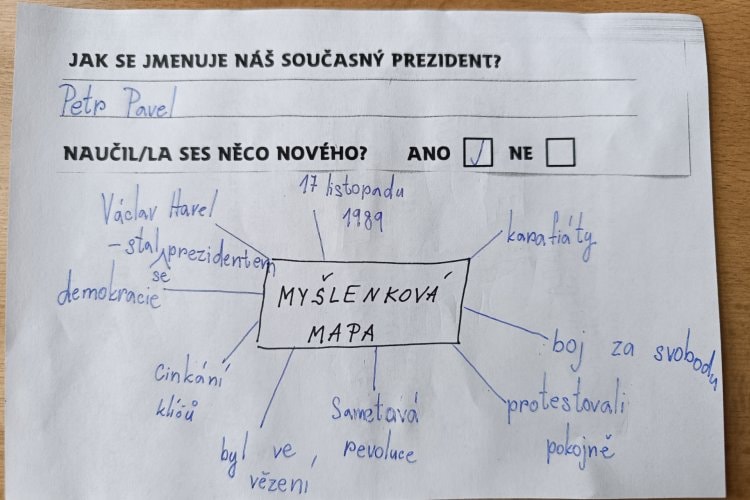 JAK SE JMENUJE NÁŠ SOUČASNÝ PREZIDENT?
Petr Pavel
NAUČIL/LA SES NĚCO NOVÉHO? ANO ✓ NE
17 listopadu
1989
Václav Havel
– stal se prezidentem
karafiáty
demokracie
MYŠLENKOVÁ
MAPA
boj za svobodu
cinkání
klíčů
Sametová
revoluce
protestovali
pokojně
byl ve
vězení